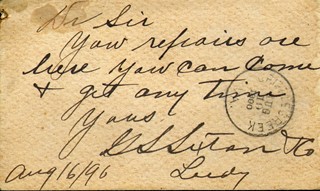 Dr Sir
Yow repairs are
here Yow can come
& get any time
Yours
G S Sexton & Co
Leedy
Aug 16/96
CREEK